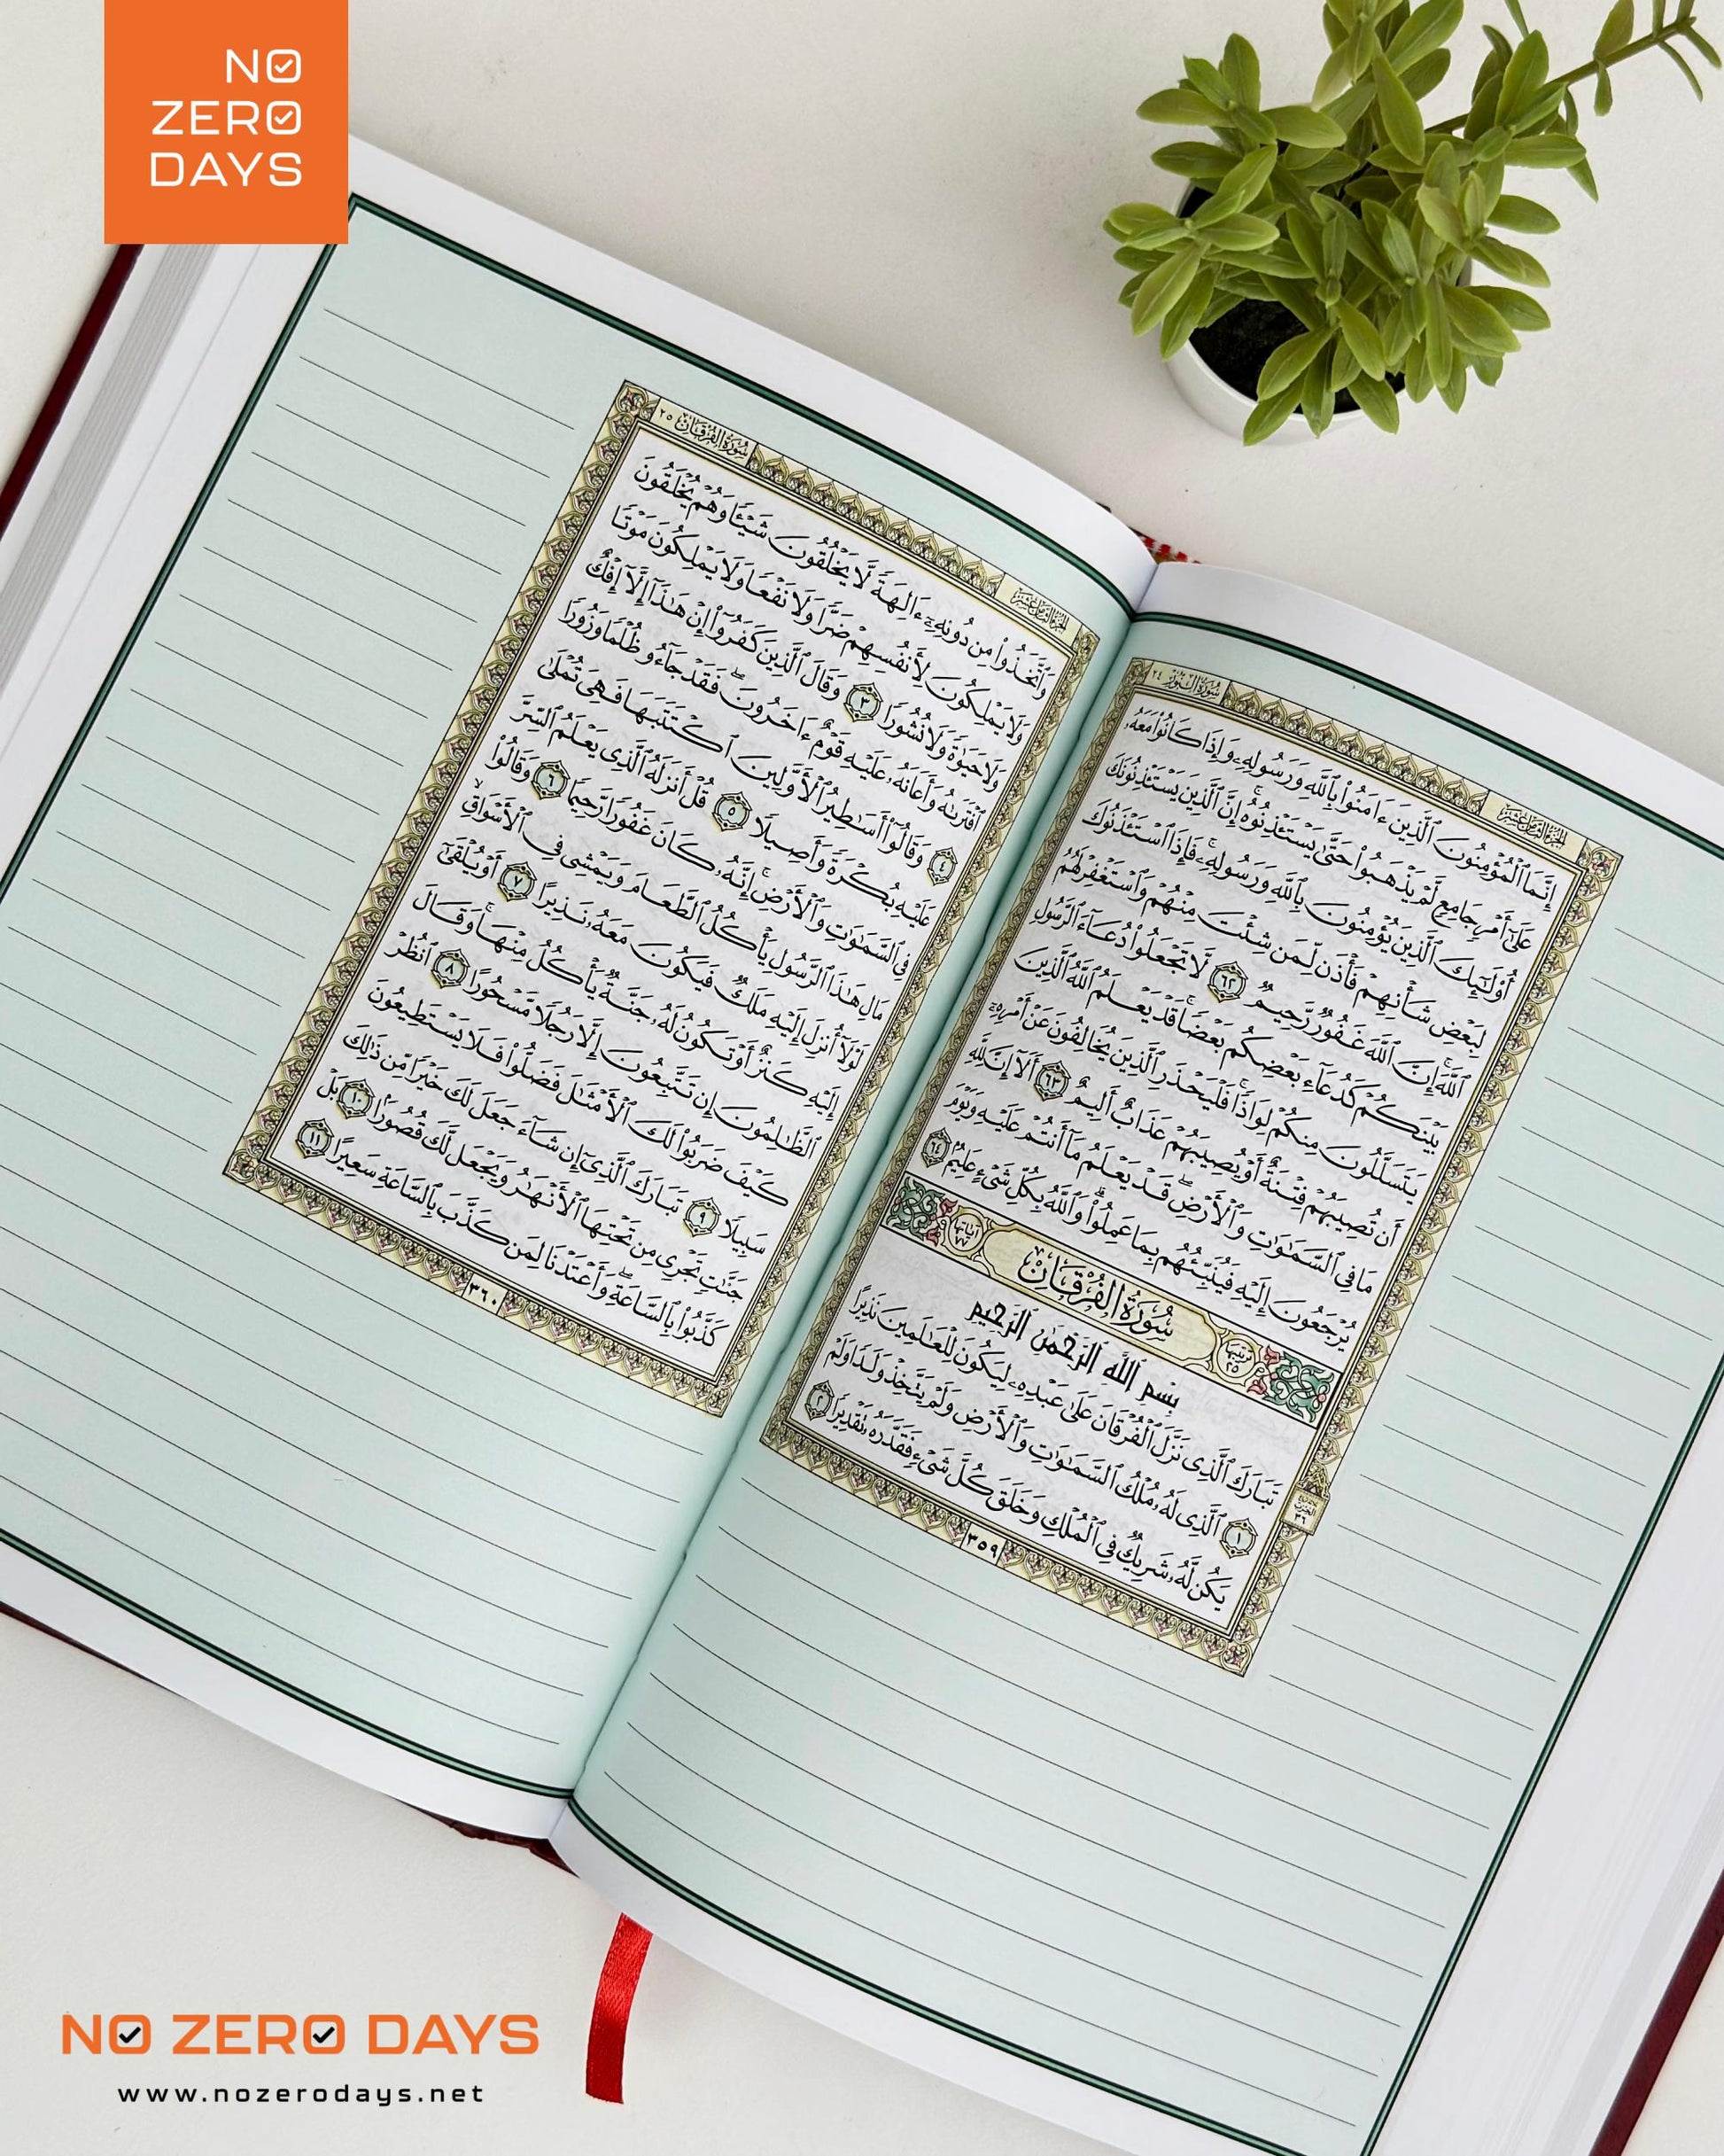 NO
ZERO
DAYS
سُورَةُ النُّورِ ٢٤
الجزء الثامن عشر
إِنَّمَا ٱلْمُؤْمِنُونَ ٱلَّذِينَ ءَامَنُوا۟ بِٱللَّهِ وَرَسُولِهِۦ وَإِذَا كَانُوا۟ مَعَهُۥ
عَلَىٰٓ أَمْرٍ جَامِعٍ لَّمْ يَذْهَبُوا۟ حَتَّىٰ يَسْتَـْٔذِنُوهُ ۚ إِنَّ ٱلَّذِينَ يَسْتَـْٔذِنُونَكَ
أُو۟لَـٰٓئِكَ ٱلَّذِينَ يُؤْمِنُونَ بِٱللَّهِ وَرَسُولِهِۦ ۚ فَإِذَا ٱسْتَـْٔذَنُوكَ
لِبَعْضِ شَأْنِهِمْ فَأْذَن لِّمَن شِئْتَ مِنْهُمْ وَٱسْتَغْفِرْ لَهُمُ
ٱللَّهَ ۚ إِنَّ ٱللَّهَ غَفُورٌ رَّحِيمٌ ٦٢ لَّا تَجْعَلُوا۟ دُعَآءَ ٱلرَّسُولِ
بَيْنَكُمْ كَدُعَآءِ بَعْضِكُم بَعْضًا ۚ قَدْ يَعْلَمُ ٱللَّهُ ٱلَّذِينَ
يَتَسَلَّلُونَ مِنكُمْ لِوَاذًا ۚ فَلْيَحْذَرِ ٱلَّذِينَ يُخَالِفُونَ عَنْ أَمْرِهِۦٓ
أَن تُصِيبَهُمْ فِتْنَةٌ أَوْ يُصِيبَهُمْ عَذَابٌ أَلِيمٌ ٦٣ أَلَآ إِنَّ لِلَّهِ
مَا فِى ٱلسَّمَـٰوَٰتِ وَٱلْأَرْضِ ۖ قَدْ يَعْلَمُ مَآ أَنتُمْ عَلَيْهِ وَيَوْمَ
يُرْجَعُونَ إِلَيْهِ فَيُنَبِّئُهُم بِمَا عَمِلُوا۟ ۗ وَٱللَّهُ بِكُلِّ شَىْءٍ عَلِيمٌۢ ٦٤
ترتيبها ٢٥ سُورَةُ الفُرْقَانِ آياتها ٧٧
بِسْمِ ٱللَّهِ ٱلرَّحْمَـٰنِ ٱلرَّحِيمِ
تَبَارَكَ ٱلَّذِى نَزَّلَ ٱلْفُرْقَانَ عَلَىٰ عَبْدِهِۦ لِيَكُونَ لِلْعَـٰلَمِينَ نَذِيرًا
١ ٱلَّذِى لَهُۥ مُلْكُ ٱلسَّمَـٰوَٰتِ وَٱلْأَرْضِ وَلَمْ يَتَّخِذْ وَلَدًا وَلَمْ
يَكُن لَّهُۥ شَرِيكٌ فِى ٱلْمُلْكِ وَخَلَقَ كُلَّ شَىْءٍ فَقَدَّرَهُۥ تَقْدِيرًا ٢
الحزب
٣٦
٣٥٩
سُورَةُ الفُرْقَانِ ٢٥
الجزء الثامن عشر
وَٱتَّخَذُوا۟ مِن دُونِهِۦٓ ءَالِهَةً لَّا يَخْلُقُونَ شَيْـًٔا وَهُمْ يُخْلَقُونَ
وَلَا يَمْلِكُونَ لِأَنفُسِهِمْ ضَرًّا وَلَا نَفْعًا وَلَا يَمْلِكُونَ مَوْتًا
وَلَا حَيَوٰةً وَلَا نُشُورًا ٣ وَقَالَ ٱلَّذِينَ كَفَرُوٓا۟ إِنْ هَـٰذَآ إِلَّآ إِفْكٌ
ٱفْتَرَىٰهُ وَأَعَانَهُۥ عَلَيْهِ قَوْمٌ ءَاخَرُونَ ۖ فَقَدْ جَآءُو ظُلْمًا وَزُورًا
٤ وَقَالُوٓا۟ أَسَـٰطِيرُ ٱلْأَوَّلِينَ ٱكْتَتَبَهَا فَهِىَ تُمْلَىٰ
عَلَيْهِ بُكْرَةً وَأَصِيلًا ٥ قُلْ أَنزَلَهُ ٱلَّذِى يَعْلَمُ ٱلسِّرَّ
فِى ٱلسَّمَـٰوَٰتِ وَٱلْأَرْضِ ۚ إِنَّهُۥ كَانَ غَفُورًا رَّحِيمًا ٦ وَقَالُوا۟
مَالِ هَـٰذَا ٱلرَّسُولِ يَأْكُلُ ٱلطَّعَامَ وَيَمْشِى فِى ٱلْأَسْوَاقِ ۙ
لَوْلَآ أُنزِلَ إِلَيْهِ مَلَكٌ فَيَكُونَ مَعَهُۥ نَذِيرًا ٧ أَوْ يُلْقَىٰٓ
إِلَيْهِ كَنزٌ أَوْ تَكُونُ لَهُۥ جَنَّةٌ يَأْكُلُ مِنْهَا ۚ وَقَالَ
ٱلظَّـٰلِمُونَ إِن تَتَّبِعُونَ إِلَّا رَجُلًا مَّسْحُورًا ٨ ٱنظُرْ
كَيْفَ ضَرَبُوا۟ لَكَ ٱلْأَمْثَـٰلَ فَضَلُّوا۟ فَلَا يَسْتَطِيعُونَ
سَبِيلًا ٩ تَبَارَكَ ٱلَّذِىٓ إِن شَآءَ جَعَلَ لَكَ خَيْرًا مِّن ذَٰلِكَ
جَنَّـٰتٍ تَجْرِى مِن تَحْتِهَا ٱلْأَنْهَـٰرُ وَيَجْعَل لَّكَ قُصُورًۢا ١٠ بَلْ
كَذَّبُوا۟ بِٱلسَّاعَةِ ۖ وَأَعْتَدْنَا لِمَن كَذَّبَ بِٱلسَّاعَةِ سَعِيرًا ١١
٣٦٠
NO ZERO DAYS
www.nozerodays.net